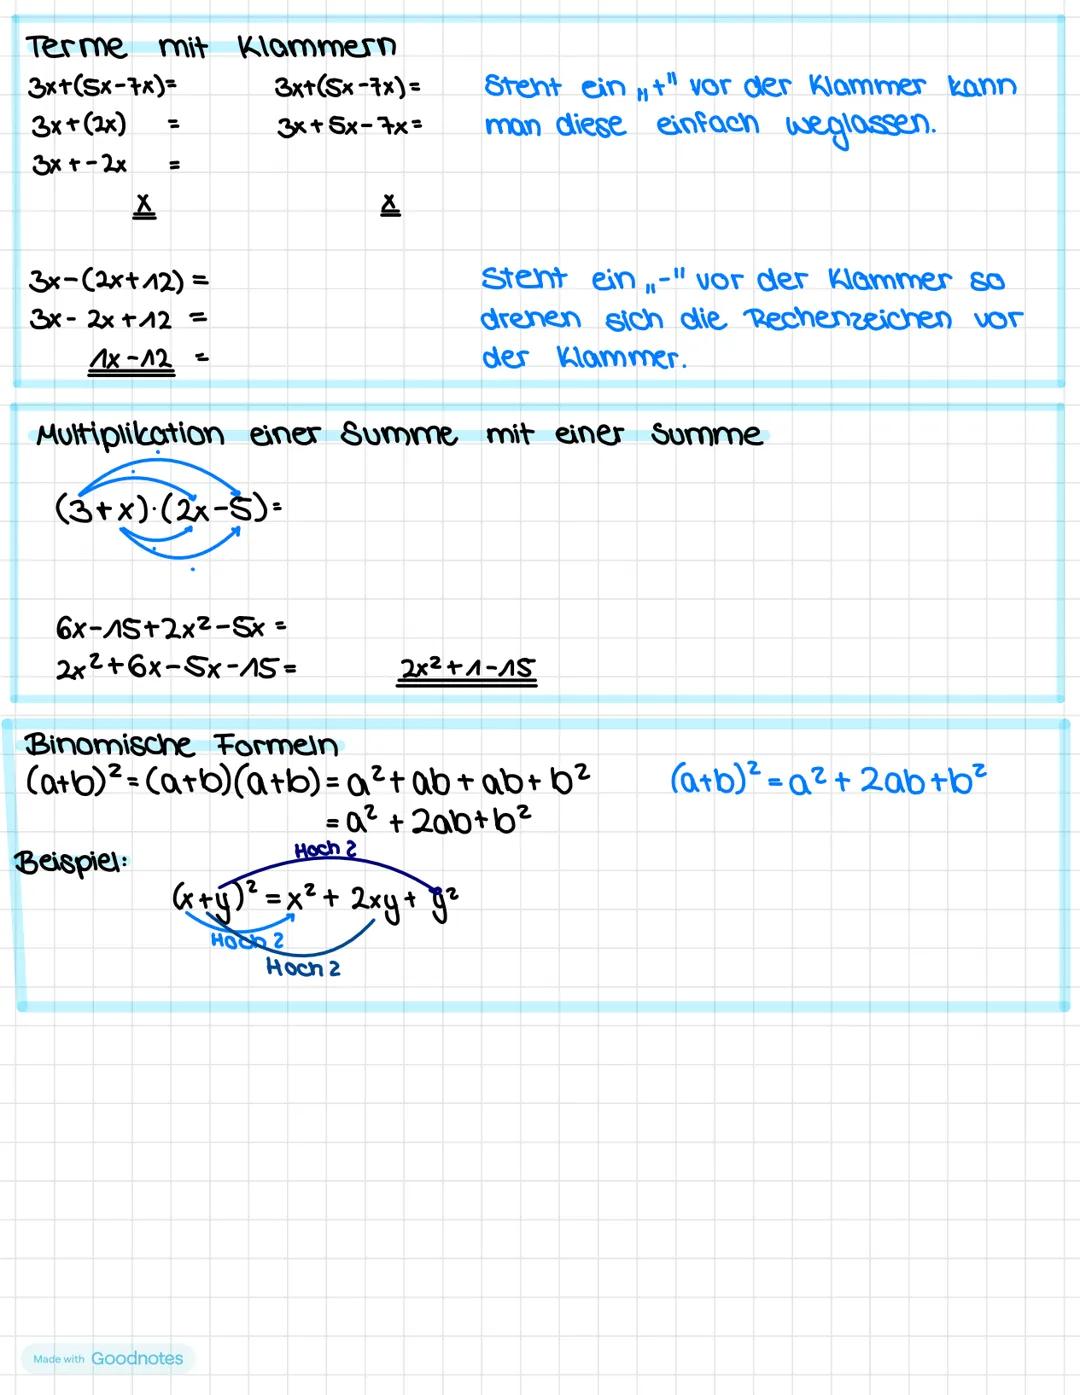 Terme mit Klammern
3x+(5x-7x)=
3x+(5x-7x)=
Steht ein „+" vor der Klammer kann
3x+(2x) =
3x+5x-7x=
man diese einfach weglassen.
3x+-2x =
x
x
3x-(2x+12)=
Steht ein „-" vor der Klammer so
3x-2x+12 =
drehen sich die Rechenzeichen vor
1x-12 =
der Klammer.
Multiplikation einer Summe mit einer Summe
(3+x)·(2x-5)=
6x-15+2x²-5x =
2x²+6x-5x-15=
2x²+1-15
Binomische Formeln
(a+b)²=(a+b)(a+b)=a²+ab+ab+b²
(a+b)²=a²+2ab+b²
=a²+2ab+b²
Hoch 2
Beispiel:
(x+y)²=x²+2xy+y²
Hoch 2
Hoch 2
Made with Goodnotes